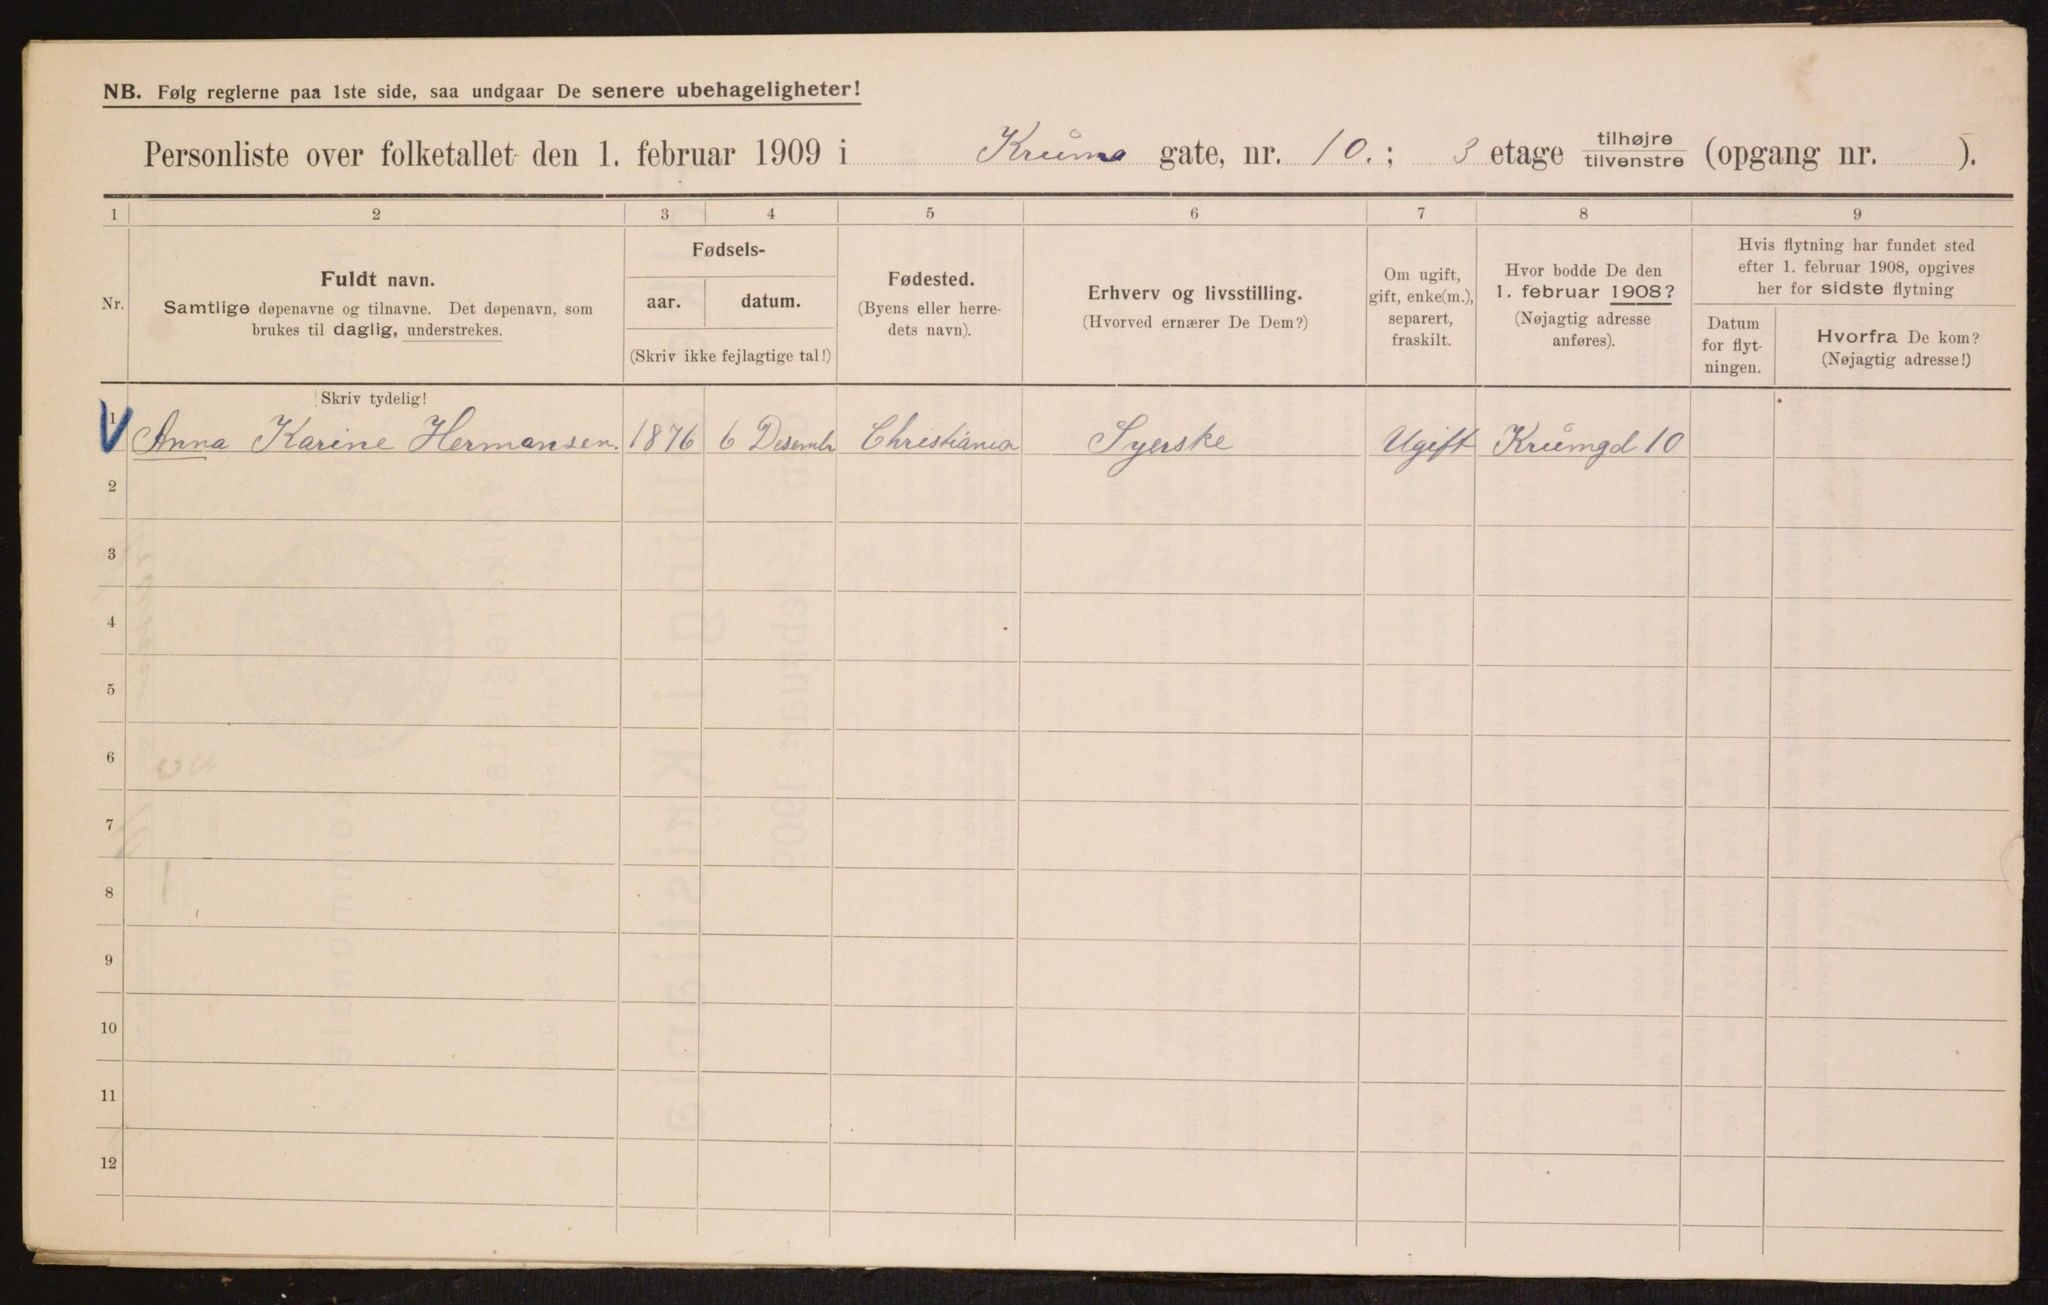 NB. Følg reglerne paa 1ste side, saa undgaar De senere ubehageligheter!
Personliste over folketallet den 1. februar 1909 i Krúms gate, nr. 10.; 3 etage tilhøjre/tilvenstre (opgang nr. ).
1 2 3 4 5 6 7 8 9
Nr.
Fuldt navn.
Samtlige døpenavne og tilnavne. Det døpenavn, som
brukes til daglig, understrekes.
Fødsels-
aar. datum.
(Skriv ikke fejlagtige tal!)
Fødested.
(Byens eller herre-
dets navn).
Erhverv og livsstilling.
(Hvorved ernærer De Dem?)
Om ugift,
gift, enke(m.),
separert,
fraskilt.
Hvor bodde De den
1. februar 1908?
(Nøjagtig adresse
anføres).
Hvis flytning har fundet sted
efter 1. februar 1908, opgives
her for sidste flytning
Datum
for flyt-
ningen.
Hvorfra De kom?
(Nøjagtig adresse!)
Skriv tydelig!
1 Anna Karine Hermansen. 1876 6 Desembr Christiania Syerske Ugift Krúmgd 10
2
3
4
5
6
7
8
9
10
11
12